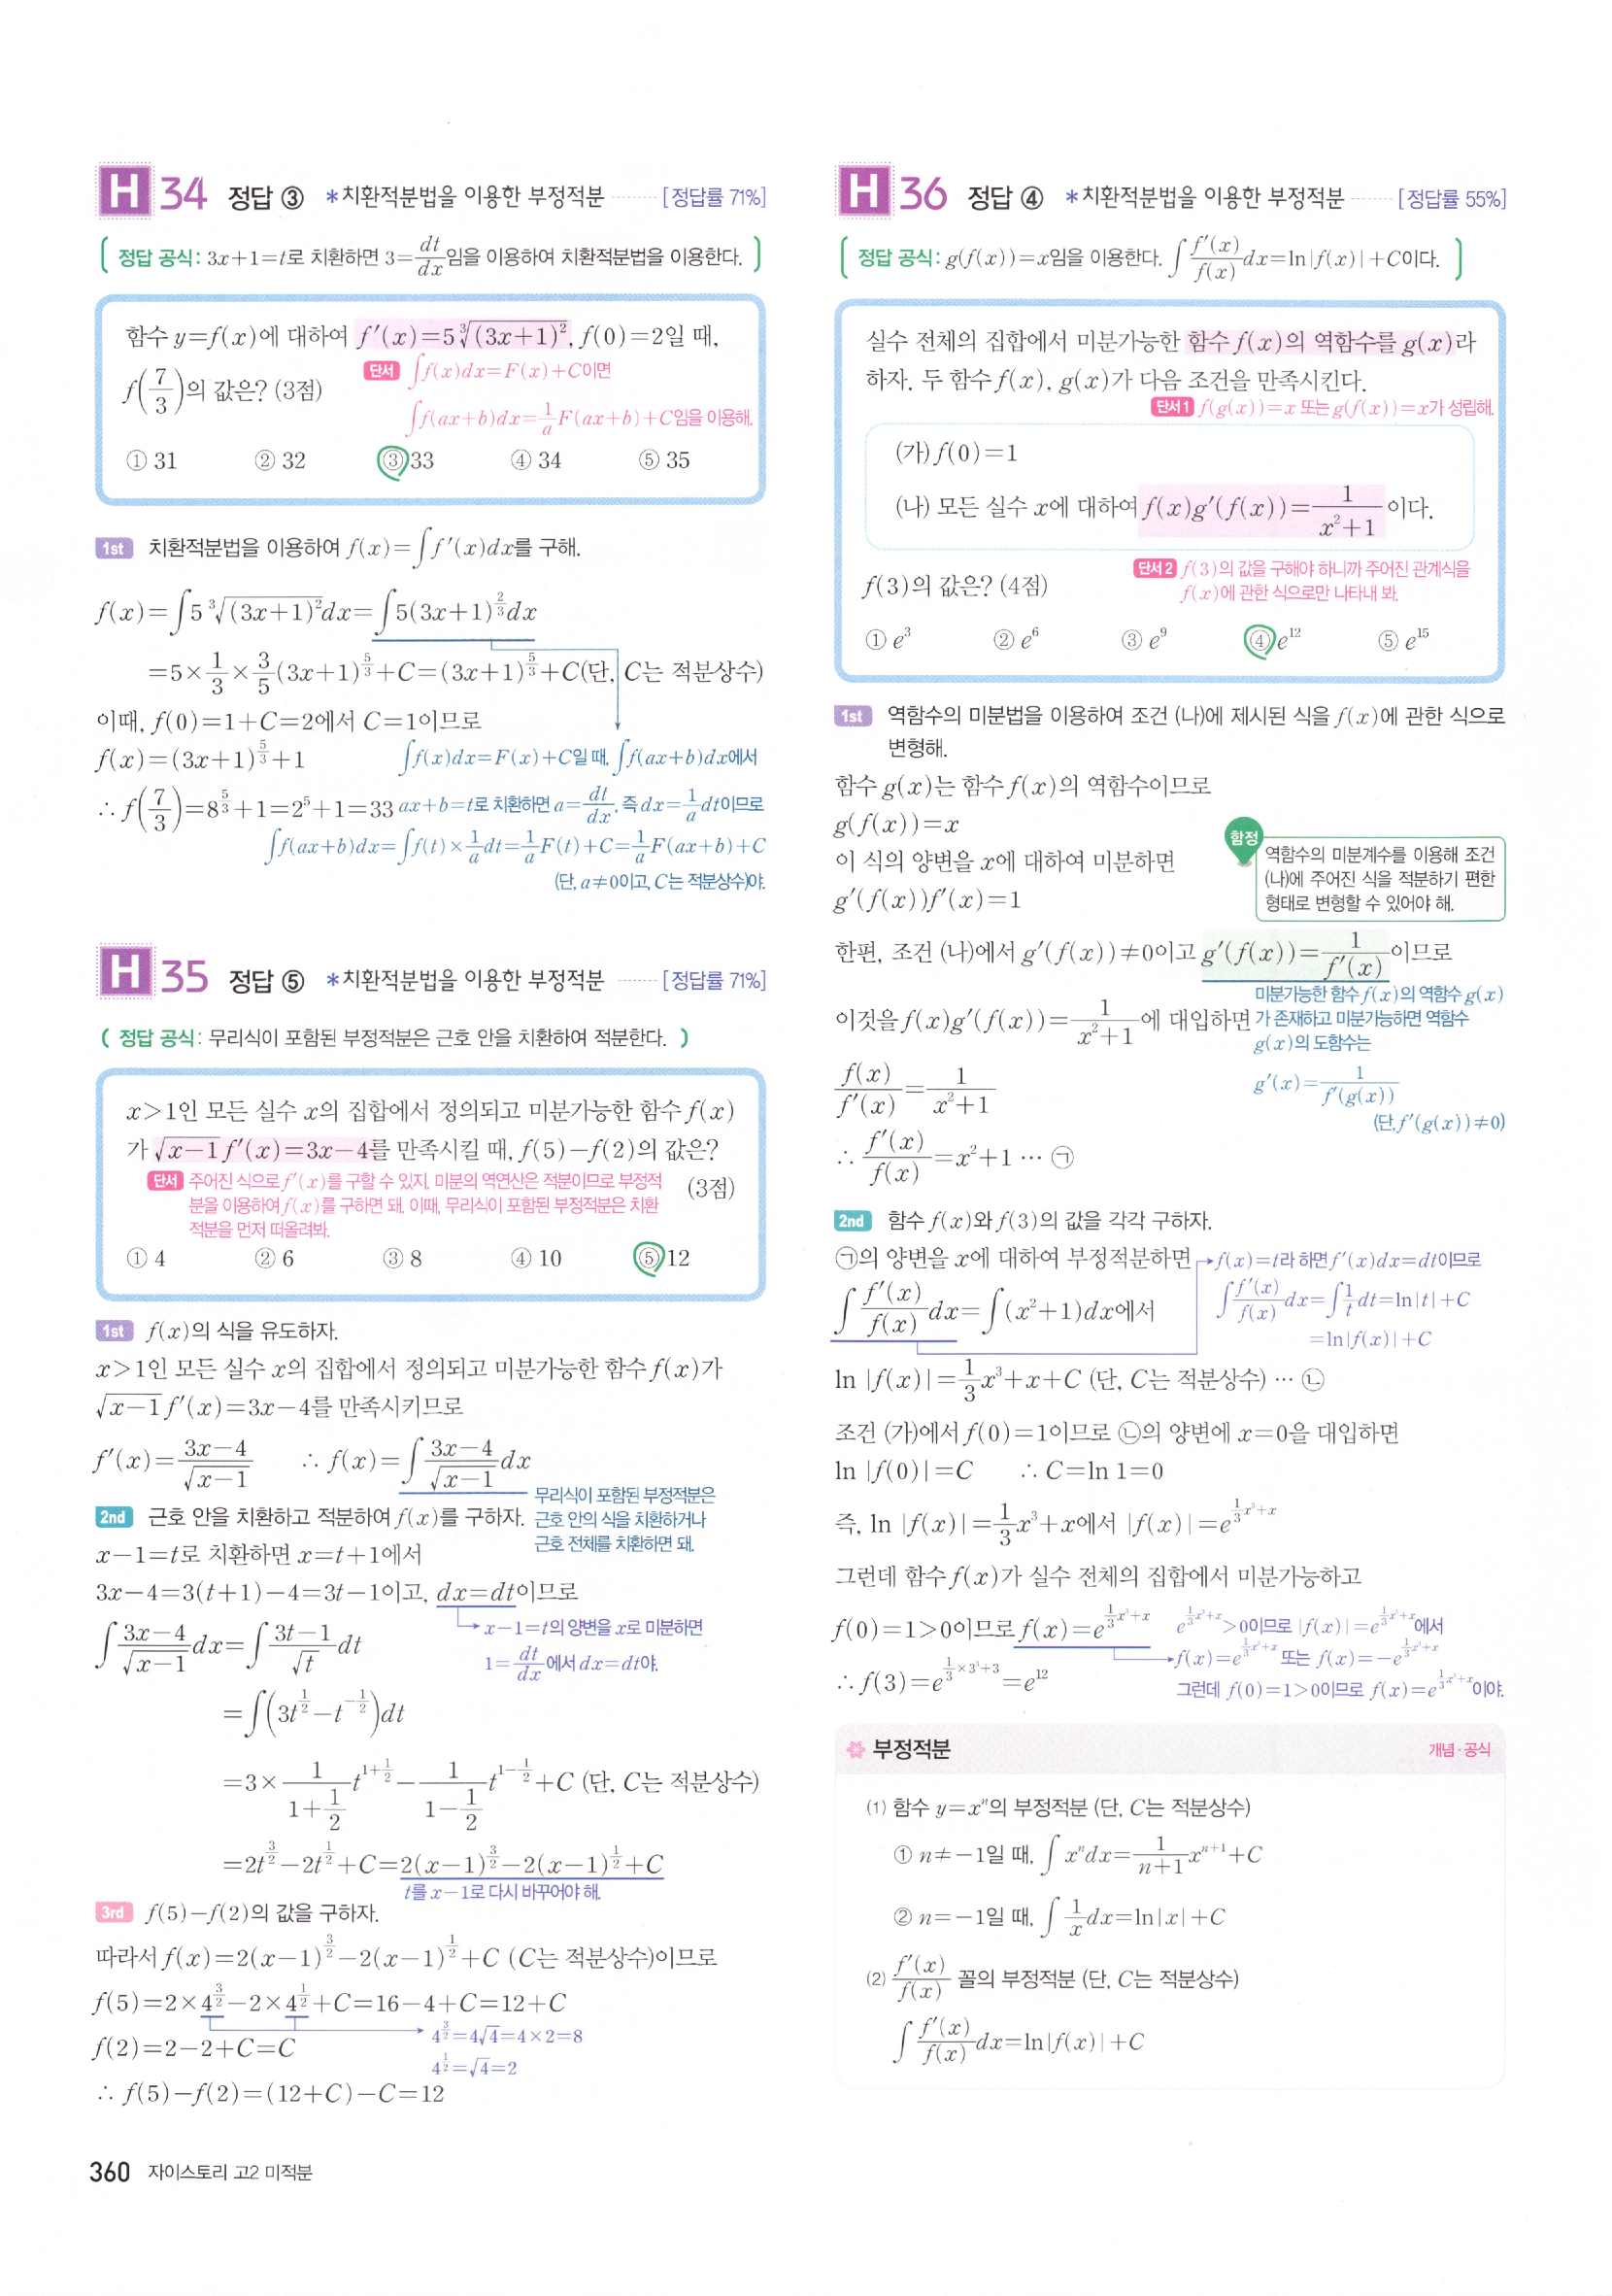 H 34 정답 ③ *치환적분법을 이용한 부정적분 [정답률 71%]
정답 공식: 3x+1=t로 치환하면 3=dt/dx임을 이용하여 치환적분법을 이용한다.
함수 y=f(x)에 대하여 f'(x)=5∛(3x+1)², f(0)=2일 때,
f(7/3)의 값은? (3점)
단서 ∫f(x)dx=F(x)+C이면
∫f(ax+b)dx=1/a F(ax+b)+C임을 이용해.
① 31 ② 32 ③ 33 ④ 34 ⑤ 35
1st 치환적분법을 이용하여 f(x)=∫f'(x)dx를 구해.
f(x)=∫5∛(3x+1)²dx=∫5(3x+1)^(2/3)dx
=5×1/3×3/5(3x+1)^(5/3)+C=(3x+1)^(5/3)+C(단, C는 적분상수)
이때, f(0)=1+C=2에서 C=1이므로
f(x)=(3x+1)^(5/3)+1
∴ f(7/3)=8^(5/3)+1=2⁵+1=33
∫f(x)dx=F(x)+C일 때, ∫f(ax+b)dx에서
ax+b=t로 치환하면 a=dt/dx, 즉 dx=1/a dt이므로
∫f(ax+b)dx=∫f(t)×1/a dt=1/a F(t)+C=1/a F(ax+b)+C
(단, a≠0이고, C는 적분상수)야.
H 35 정답 ⑤ *치환적분법을 이용한 부정적분 [정답률 71%]
( 정답 공식: 무리식이 포함된 부정적분은 근호 안을 치환하여 적분한다. )
x>1인 모든 실수 x의 집합에서 정의되고 미분가능한 함수 f(x)
가 √(x-1) f'(x)=3x-4를 만족시킬 때, f(5)-f(2)의 값은?
(3점)
단서 주어진 식으로 f'(x)를 구할 수 있지. 미분의 역연산은 적분이므로 부정적
분을 이용하여 f(x)를 구하면 돼. 이때, 무리식이 포함된 부정적분은 치환
적분을 먼저 떠올려봐.
① 4 ② 6 ③ 8 ④ 10 ⑤ 12
1st f(x)의 식을 유도하자.
x>1인 모든 실수 x의 집합에서 정의되고 미분가능한 함수 f(x)가
√(x-1) f'(x)=3x-4를 만족시키므로
f'(x)=(3x-4)/√(x-1) ∴ f(x)=∫(3x-4)/√(x-1) dx
무리식이 포함된 부정적분은
근호 안의 식을 치환하거나
근호 전체를 치환하면 돼.
2nd 근호 안을 치환하고 적분하여 f(x)를 구하자.
x-1=t로 치환하면 x=t+1에서
3x-4=3(t+1)-4=3t-1이고, dx=dt이므로
x-1=t의 양변을 x로 미분하면
1=dt/dx에서 dx=dt야.
∫(3x-4)/√(x-1) dx=∫(3t-1)/√t dt
=∫(3t^(1/2)-t^(-1/2))dt
=3×1/(1+1/2) t^(1+1/2)-1/(1-1/2) t^(1-1/2)+C (단, C는 적분상수)
=2t^(3/2)-2t^(1/2)+C=2(x-1)^(3/2)-2(x-1)^(1/2)+C
t를 x-1로 다시 바꾸어야 해.
3rd f(5)-f(2)의 값을 구하자.
따라서 f(x)=2(x-1)^(3/2)-2(x-1)^(1/2)+C (C는 적분상수)이므로
f(5)=2×4^(3/2)-2×4^(1/2)+C=16-4+C=12+C
4^(3/2)=4√4=4×2=8
4^(1/2)=√4=2
f(2)=2-2+C=C
∴ f(5)-f(2)=(12+C)-C=12
H 36 정답 ④ *치환적분법을 이용한 부정적분 [정답률 55%]
정답 공식: g(f(x))=x임을 이용한다. ∫f'(x)/f(x) dx=ln|f(x)|+C이다.
실수 전체의 집합에서 미분가능한 함수 f(x)의 역함수를 g(x)라
하자. 두 함수 f(x), g(x)가 다음 조건을 만족시킨다.
단서1 f(g(x))=x 또는 g(f(x))=x가 성립해.
(가) f(0)=1
(나) 모든 실수 x에 대하여 f(x)g'(f(x))=1/(x²+1)이다.
단서2 f(3)의 값을 구해야 하니까 주어진 관계식을
f(x)에 관한 식으로만 나타내 봐.
f(3)의 값은? (4점)
① e³ ② e⁶ ③ e⁹ ④ e¹² ⑤ e¹⁵
1st 역함수의 미분법을 이용하여 조건 (나)에 제시된 식을 f(x)에 관한 식으로
변형해.
함수 g(x)는 함수 f(x)의 역함수이므로
g(f(x))=x
이 식의 양변을 x에 대하여 미분하면
g'(f(x))f'(x)=1
함정 역함수의 미분계수를 이용해 조건
(나)에 주어진 식을 적분하기 편한
형태로 변형할 수 있어야 해.
한편, 조건 (나)에서 g'(f(x))≠0이고 g'(f(x))=1/f'(x)이므로
이것을 f(x)g'(f(x))=1/(x²+1)에 대입하면
미분가능한 함수 f(x)의 역함수 g(x)
가 존재하고 미분가능하면 역함수
g(x)의 도함수는
g'(x)=1/f'(g(x))
(단, f'(g(x))≠0)
f(x)/f'(x)=1/(x²+1)
∴ f'(x)/f(x)=x²+1 … ㉠
2nd 함수 f(x)와 f(3)의 값을 각각 구하자.
㉠의 양변을 x에 대하여 부정적분하면
f(x)=t라 하면 f'(x)dx=dt이므로
∫f'(x)/f(x) dx=∫1/t dt=ln|t|+C
=ln|f(x)|+C
∫f'(x)/f(x) dx=∫(x²+1)dx에서
ln |f(x)|=1/3x³+x+C (단, C는 적분상수) … ㉡
조건 (가)에서 f(0)=1이므로 ㉡의 양변에 x=0을 대입하면
ln |f(0)|=C ∴ C=ln 1=0
즉, ln |f(x)|=1/3x³+x에서 |f(x)|=e^(1/3x³+x)
그런데 함수 f(x)가 실수 전체의 집합에서 미분가능하고
f(0)=1>0이므로 f(x)=e^(1/3x³+x)
e^(1/3x³+x)>0이므로 |f(x)|=e^(1/3x³+x)에서
f(x)=e^(1/3x³+x) 또는 f(x)=-e^(1/3x³+x)
그런데 f(0)=1>0이므로 f(x)=e^(1/3x³+x)이야.
∴ f(3)=e^(1/3×3³+3)=e¹²
부정적분 개념·공식
(1) 함수 y=xⁿ의 부정적분 (단, C는 적분상수)
① n≠-1일 때, ∫xⁿdx=1/(n+1) xⁿ⁺¹+C
② n=-1일 때, ∫1/x dx=ln|x|+C
(2) f'(x)/f(x) 꼴의 부정적분 (단, C는 적분상수)
∫f'(x)/f(x) dx=ln|f(x)|+C
360 자이스토리 고2 미적분